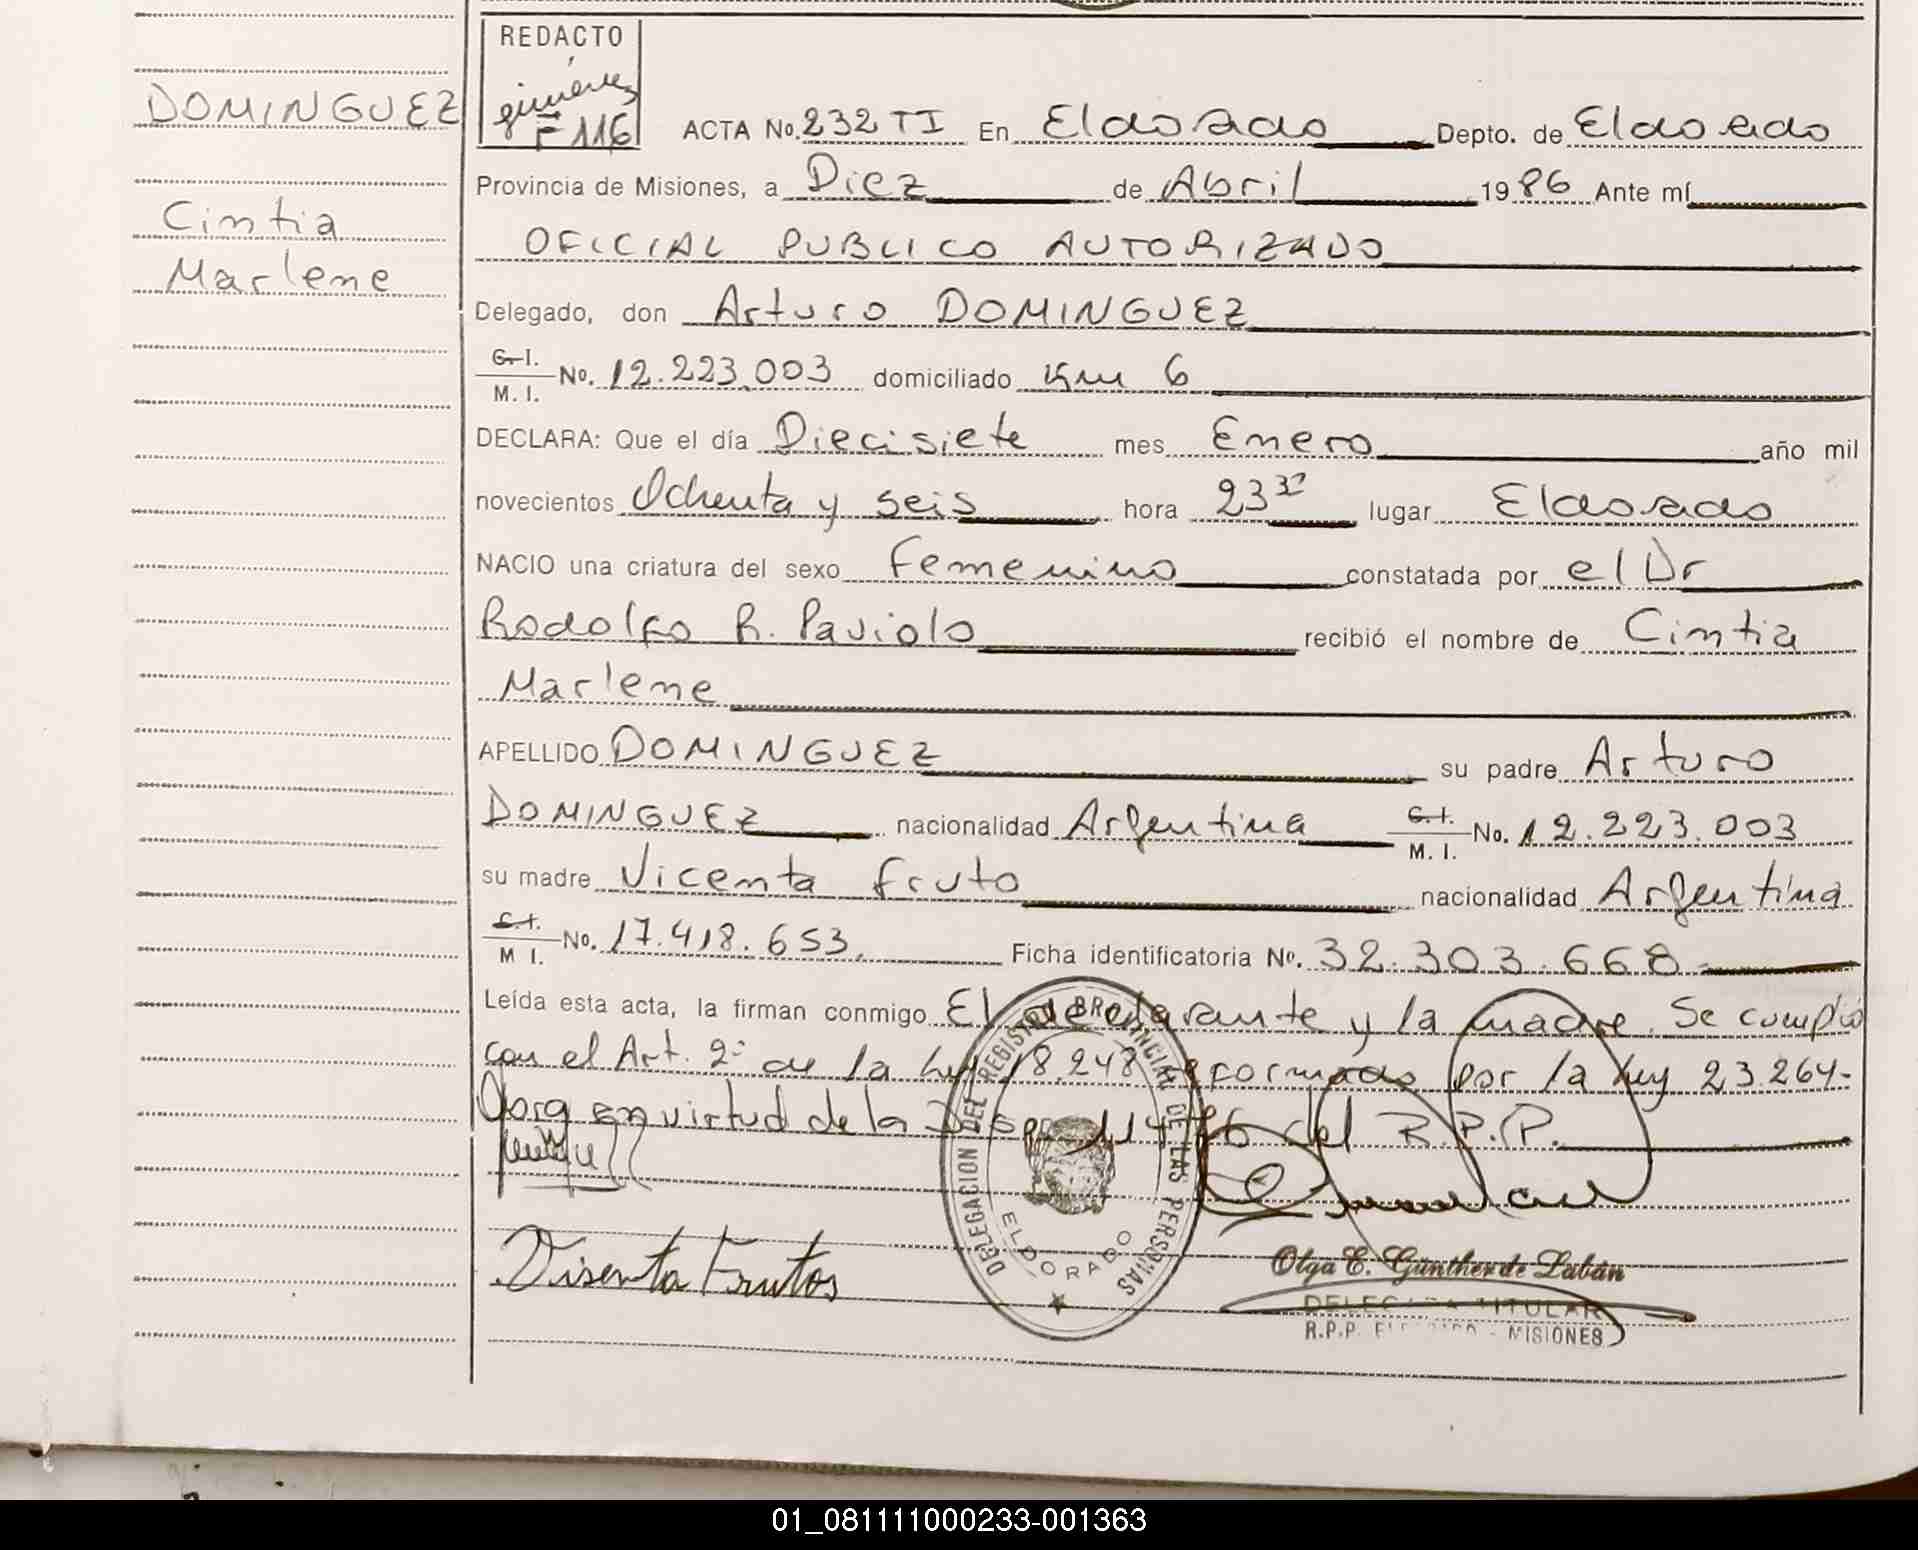 DOMINGUEZ
Cintia
Marlene
REDACTO
gimenez
F 116
ACTA No. 232 TI En Eldorado Depto. de Eldorado
Provincia de Misiones, a Diez de Abril 1986 Ante mí
OFICIAL PUBLICO AUTORIZADO
Delegado, don Arturo DOMINGUEZ
C. I. M. I. No. 12.223.003 domiciliado Km 6
DECLARA: Que el día Diecisiete mes Enero año mil
novecientos Ochenta y seis hora 23 lugar Eldorado
NACIO una criatura del sexo Femenino constatada por el Dr
Rodolfo R. Paviolo recibió el nombre de Cintia
Marlene
APELLIDO DOMINGUEZ su padre Arturo
DOMINGUEZ nacionalidad Argentina C. I. M. I. No. 12.223.003
su madre Vicenta Fruto nacionalidad Argentina
C. I. M I. No. 17.418.653. Ficha identificatoria No. 32.303.668-
Leída esta acta, la firman conmigo El declarante y la madre. Se cumplió
con el Art. 2º de la Ley 18.248 reformado por la Ley 23.264-
en virtud de la Disp. 114/86 del R.P.P.
Visenta Frutos
DELEGACION DEL REGISTRO PROVINCIAL DE LAS PERSONAS
ELDORADO
Olga E. Günther de Labán
DELEGADA TITULAR
R.P.P. ELDORADO - MISIONES
01_081111000233-001363